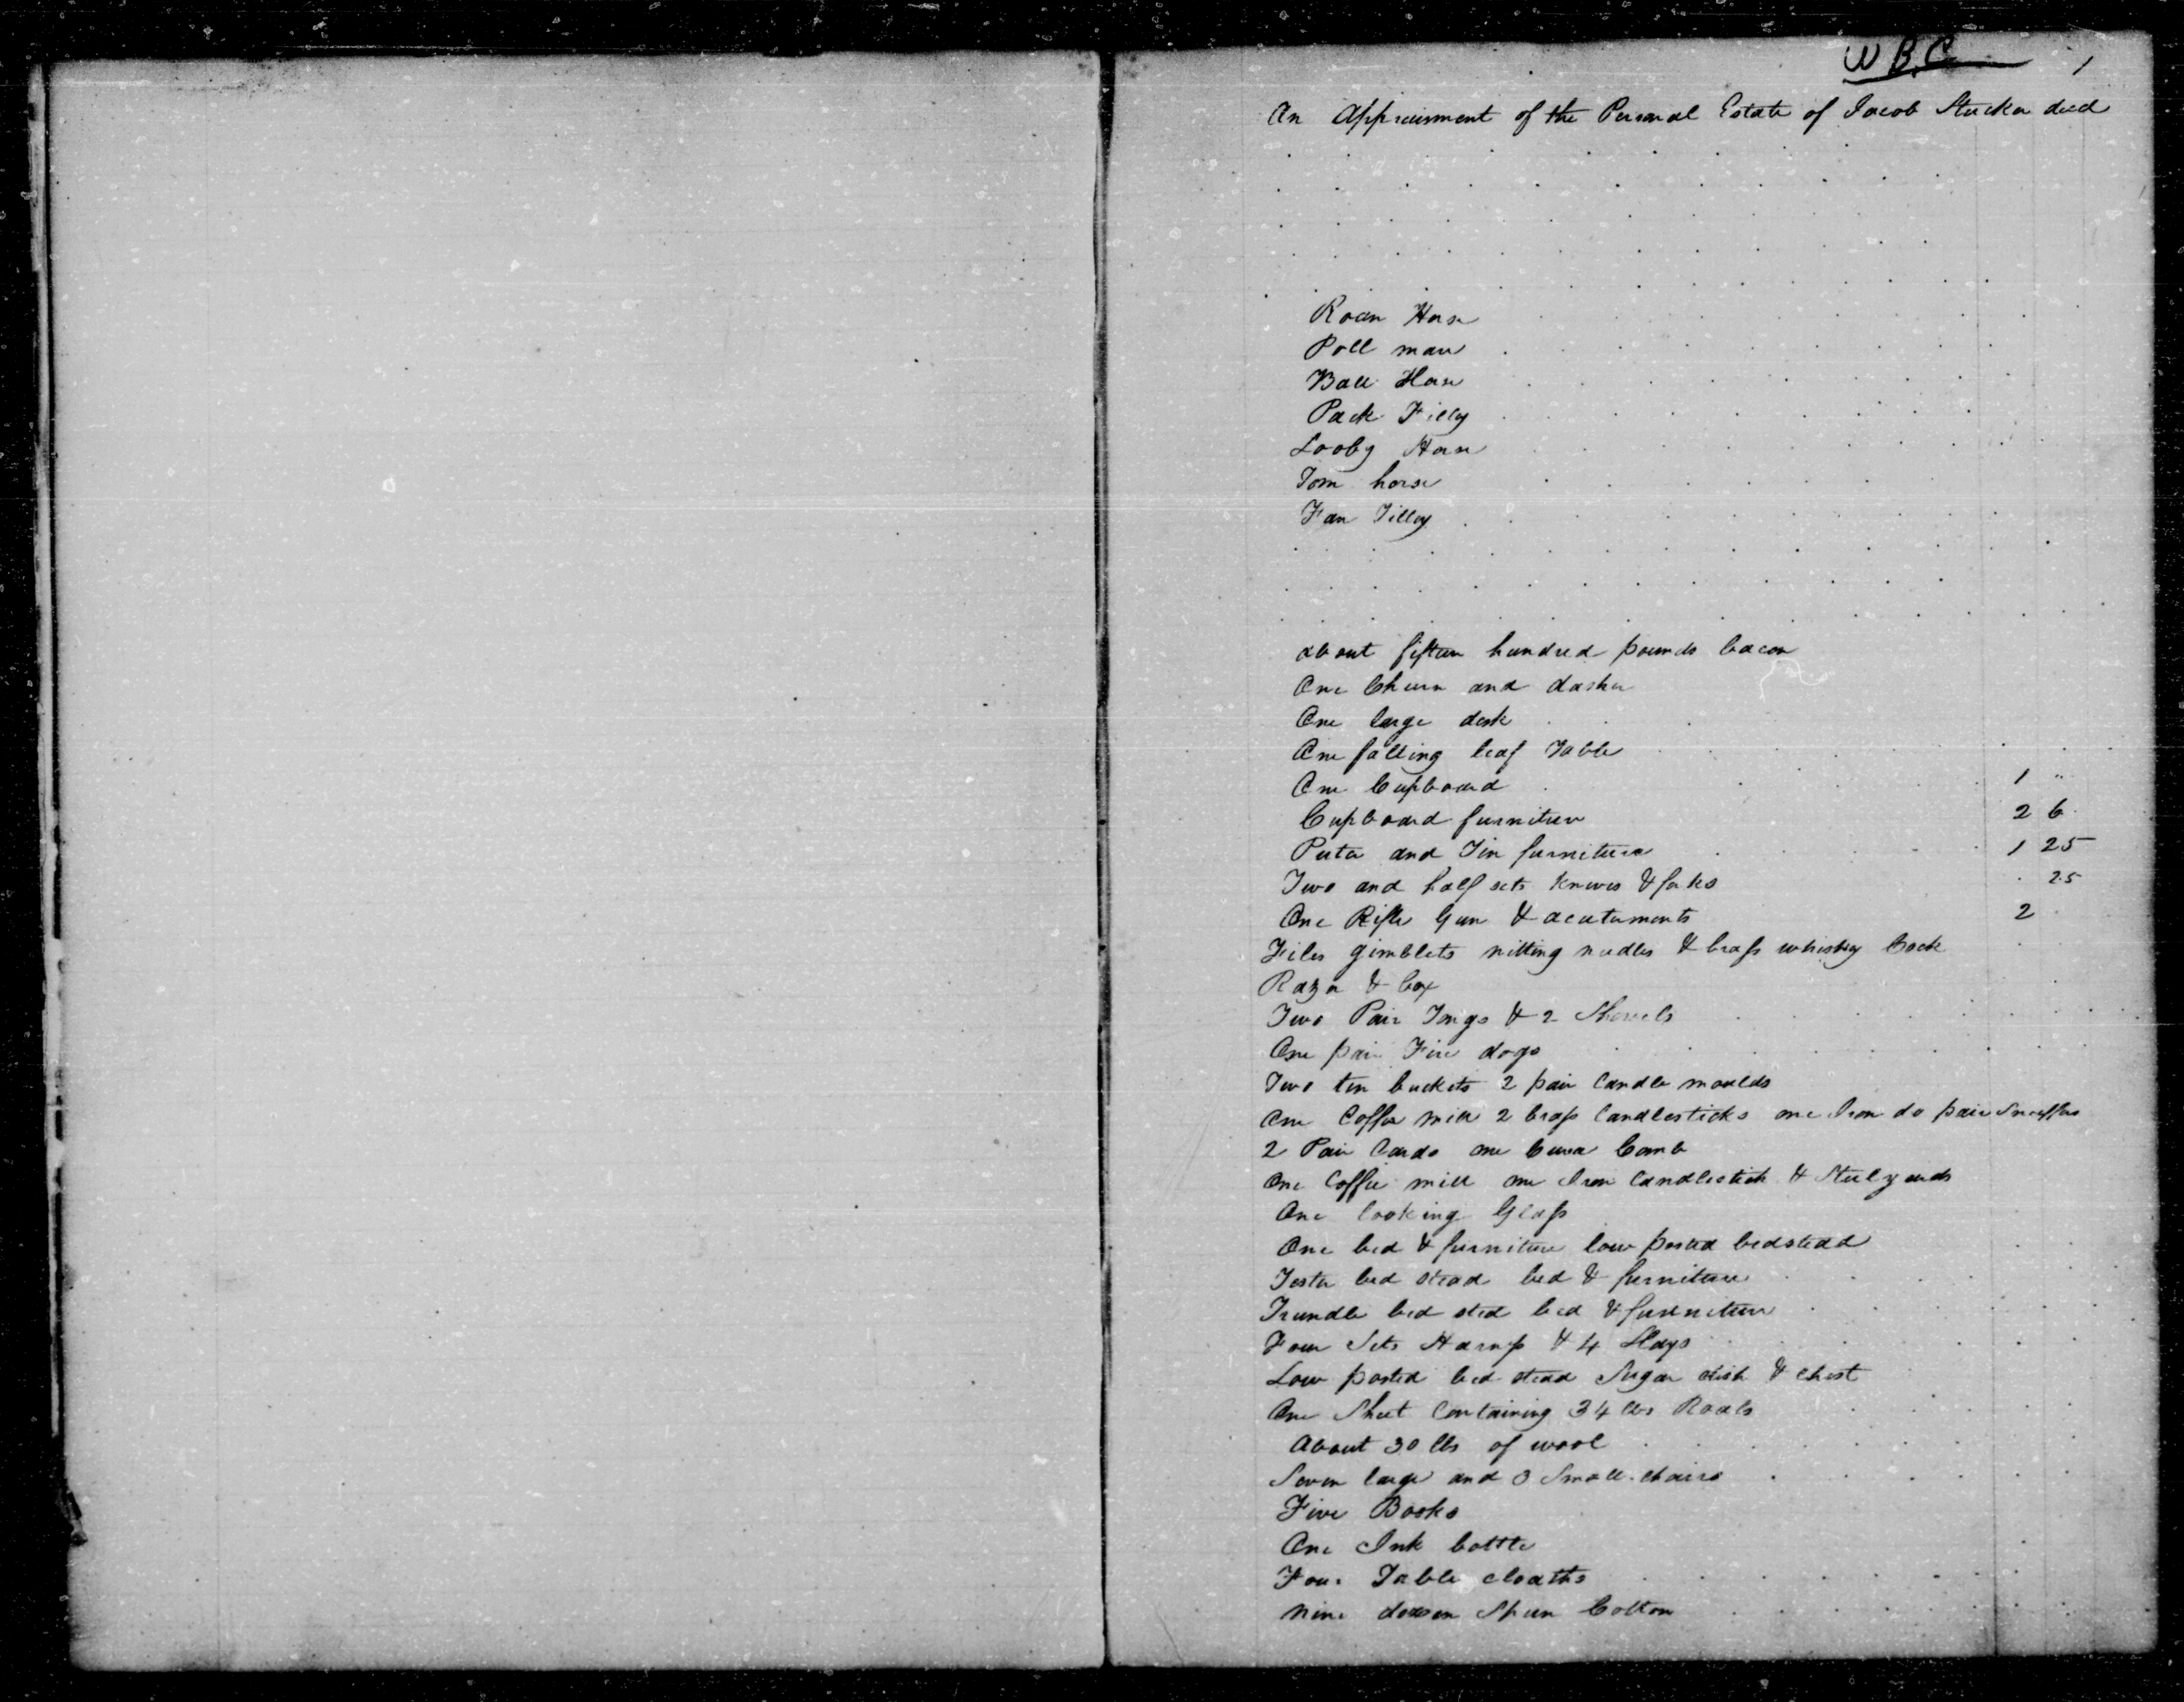 W B. C 1
An Appraisment of the Personal Estate of Jacob Stucker decd
Roan Horse
Poll mare
Ball Horse
Pack Filly
Looby Horse
Tom horse
Fan Filley
about fifteen hundred pounds bacon
One Churn and dasher
One large desk
One falling leaf Table
One Cupboard 1 "
Cupboard furniture 2 6
Puter and Tin furniture 1 25
Two and half sets knives & forks 25
One Rifle Gun & acutements 2
Files gimblets nitting needles & brass whiskey Cock
Razor & box
Two Pair Tongs & 2 Shovels
One pair Fire dogs
Two tin buckets 2 pair Candle moulds
One Coffee mill 2 brass Candlesticks one Iron do pair Snuffers
2 Pair Cards one Comb
One Coffee mill one Iron Candlestick & Stulyards
One looking Glass
One bed & furniture low posted bedstead
Tester bed stead bed & furniture
Trundle bed sted bed & furniture
Four Sets Harnss & 4 Slays
Low posted bed stead Sugar dish & chest
One Sheet Containing 34 lbs Roals
About 30 lbs of wool
Seven large and 3 Small chairs
Five Books
One Ink bottle
Four Table cloaths
nine dozen Spun Cotton